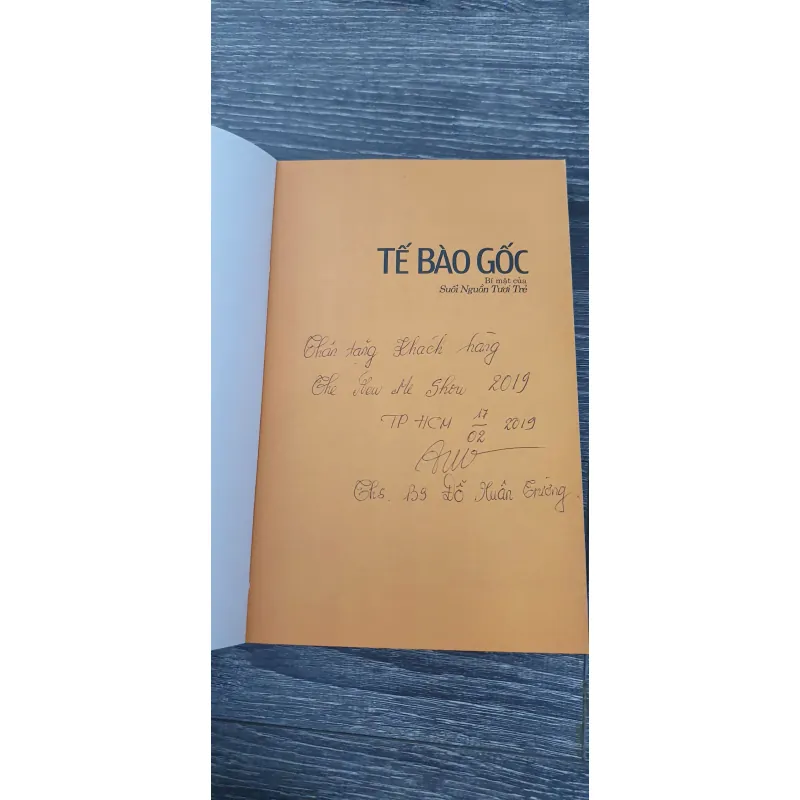 TẾ BÀO GỐC
Bí mật của
Suối Nguồn Tươi Trẻ
Thân tặng Khách hàng
The New Me Show 2019
TP HCM 17/02 2019
Ths. BS Đỗ Xuân Trường.